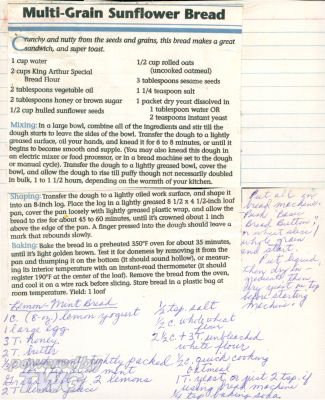 Multi-Grain Sunflower Bread
Crunchy and nutty from the seeds and grains, this bread makes a great
sandwich, and super toast.
1 cup water
2 cups King Arthur Special
Bread Flour
2 tablespoons vegetable oil
2 tablespoons honey or brown sugar
1/2 cup hulled sunflower seeds
1/2 cup rolled oats
(uncooked oatmeal)
3 tablespoons sesame seeds
1 1/4 teaspoon salt
1 packet dry yeast dissolved in
1 tablespoon water OR
2 teaspoons instant yeast
Mixing: In a large bowl, combine all of the ingredients and stir till the
dough starts to leave the sides of the bowl. Transfer the dough to a lightly
greased surface, oil your hands, and knead it for 6 to 8 minutes, or until it
begins to become smooth and supple. (You may also knead this dough in
an electric mixer or food processor, or in a bread machine set to the dough
or manual cycle). Transfer the dough to a lightly greased bowl, cover the
bowl, and allow the dough to rise till puffy though not necessarily doubled
in bulk, 1 to 1 1/2 hours, depending on the warmth of your kitchen.
Shaping: Transfer the dough to a lightly oiled work surface, and shape it
into an 8-inch log. Place the log in a lightly greased 8 1/2 x 4 1/2-inch loaf
pan, cover the pan loosely with lightly greased plastic wrap, and allow the
bread to rise for about 45 to 60 minutes, until it's crowned about 1 inch
above the edge of the pan. A finger pressed into the dough should leave a
mark that rebounds slowly.
Baking: Bake the bread in a preheated 350°F oven for about 35 minutes,
until it's light golden brown. Test it for doneness by removing it from the
pan and thumping it on the bottom (it should sound hollow), or measur-
ing its interior temperature with an instant-read thermometer (it should
register 190°F at the center of the loaf). Remove the bread from the oven,
and cool it on a wire rack before slicing. Store bread in a plastic bag at
room temperature. Yield: 1 loaf
Put all in
bread machine.
Push Basic
Bread Button
Put liquid
then dry in-
gredients then
dry yeast on top
before starting
machine.
Lemon-Mint Bread
1 c. (8-oz) lemon yogurt
1 large egg
3 T. honey
2 T. butter
tightly packed
mint
2 lemons
2 T. lemon juice
1/2 tsp. salt
1/2 c. whole wheat
flour
2 1/2 c. + 3 T. unbleached
white flour
1/2 c. quick cooking
oatmeal
1 T. yeast, or just 2 tsp. if
using bread machine
1/4 tsp. baking soda